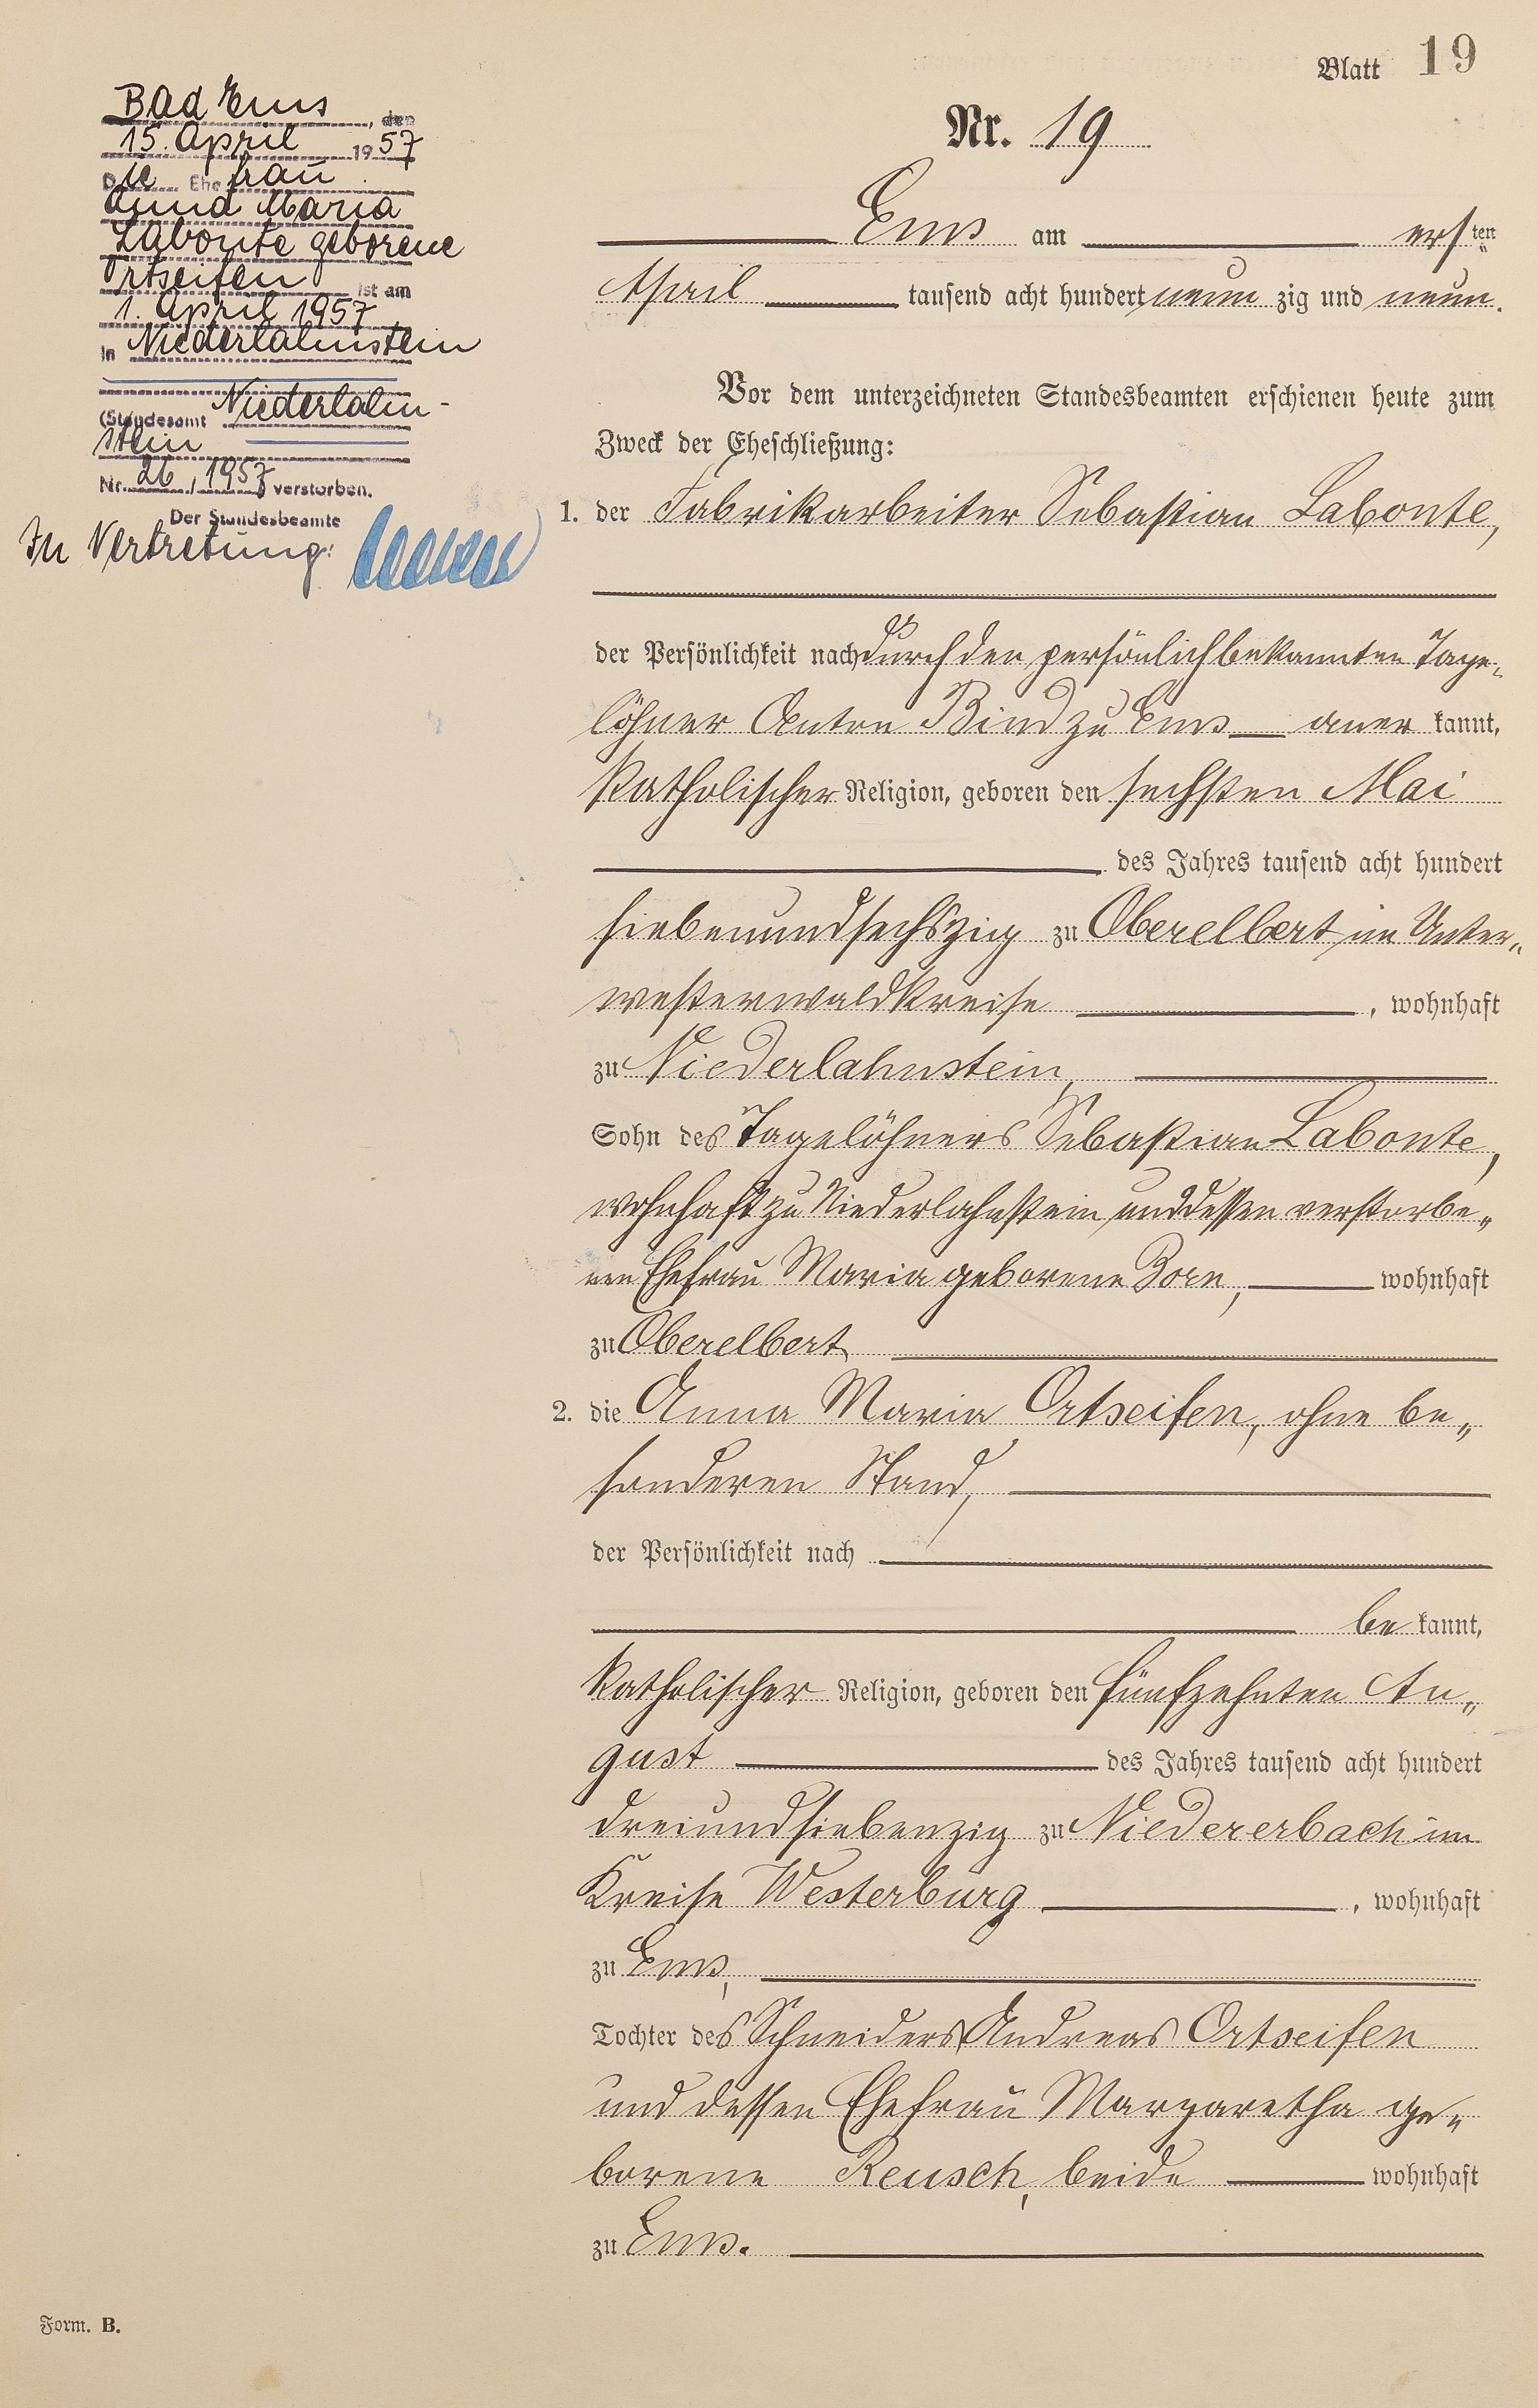 Blatt 19
Nr. 19
Bad Ems, den
15. April 1957
Die Ehefrau
Anna Maria
Labonte geborene
Ortseifen ist am
1. April 1957
in Niederlahnstein
(Standesamt Niederlahn-
stein
Nr. 26/1957 verstorben.
Der Standesbeamte
In Vertretung:
Ems am ersten
April tausend acht hundert neunzig und neun.
Vor dem unterzeichneten Standesbeamten erschienen heute zum
Zweck der Eheschließung:
1. der Fabrikarbeiter Sebastian Labonte,
der Persönlichkeit nach durch den persönlich bekannten Tage-
löhner Anton Bind zu Ems anerkannt,
katholischer Religion, geboren den sechsten Mai
des Jahres tausend acht hundert
siebenundsechszig zu Oberelbert im Unter-
westerwaldkreise, wohnhaft
zu Niederlahnstein,
Sohn des Tagelöhners Sebastian Labonte,
wohnhaft zu Niederlahnstein und dessen verstorbe-
nen Ehefrau Maria geborene Born, wohnhaft
zu Oberelbert
2. die Anna Maria Ortseifen, ohne be-
sonderen Stand,
der Persönlichkeit nach
bekannt,
katholischer Religion, geboren den fünfzehnten Au-
gust des Jahres tausend acht hundert
dreiundsiebenzig zu Niedererbach im
Kreise Westerburg, wohnhaft
zu Ems,
Tochter des Schneiders Andreas Ortseifen
und dessen Ehefrau Margaretha ge-
borene Reusch, beide wohnhaft
zu Ems.
Form. B.